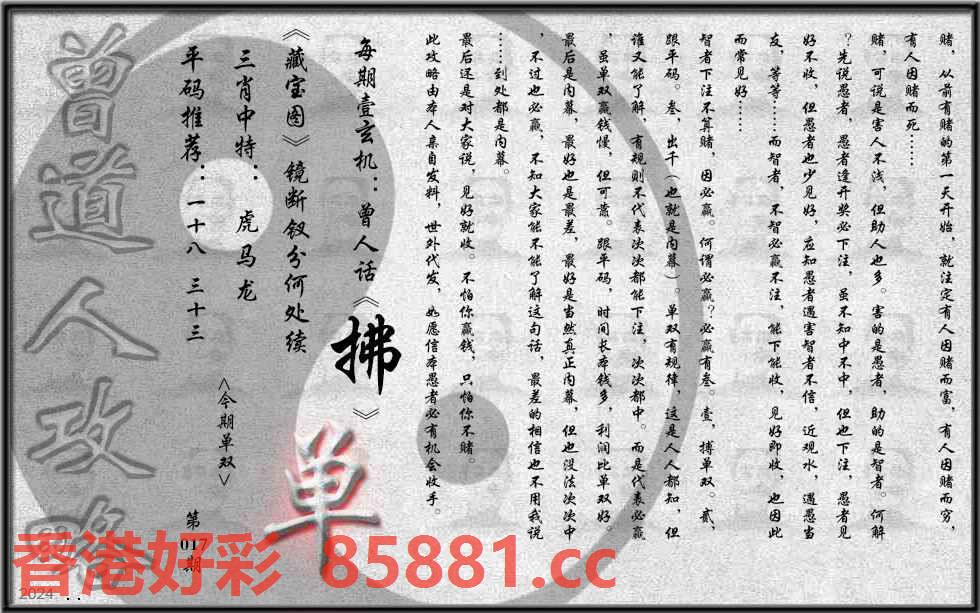 赌，从前有赌的第一天开始，就注定有人因赌而富，有人因赌而穷，
有人因赌而死……
赌，可说是害人不浅，但助人也多。害的是愚者，助的是智者。何解
？先说愚者，愚者逢开奖必下注，虽不知中不中，但也下注，愚者见
好不收，但愚者也少见好，应知愚者遇害智者不信，近观水，遇愚当
友，等等……而智者，不智必赢不注，能下能收，见好即收，也因此
而常见好……
智者下注不算赌，因必赢。何谓必赢？必赢有叁。壹，搏单双。贰，
跟平码。叁，出千（也就是内幕）。单双有规律，这是人人都知，但
谁又能了解，有规则不代表次次都能下注，次次都中。而是代表必赢
，虽单双赢钱慢，但可靠。跟平码，时间长本钱多，利润比单双好。
最后是内幕，最好也是最差，最好是当然真正内幕，但也没法次次中
，不过也必赢，不知大家能不能了解这句话，最差的相信也不用我说
……到处都是内幕。
最后还是对大家说，见好就收。不怕你赢钱，只怕你不赌。
此攻略由本人亲自发料，世外代发，如愿信本愚者必有机会收手。
每期壹玄机：曾人话《拂》
《藏宝图》镜断钗分何处续
三肖中特：虎马龙
平码推荐：一十八 三十三
<今期单双>
单
第017期
曾道人攻略
香港好彩 85881.cc
2024